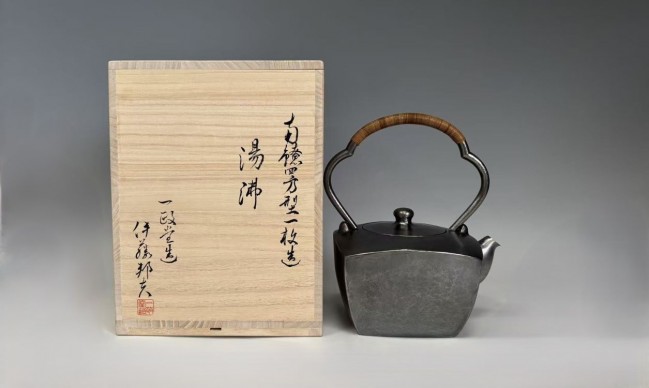 南鐐四方型一枚造
湯沸
一政堂造
伊藤邦夫